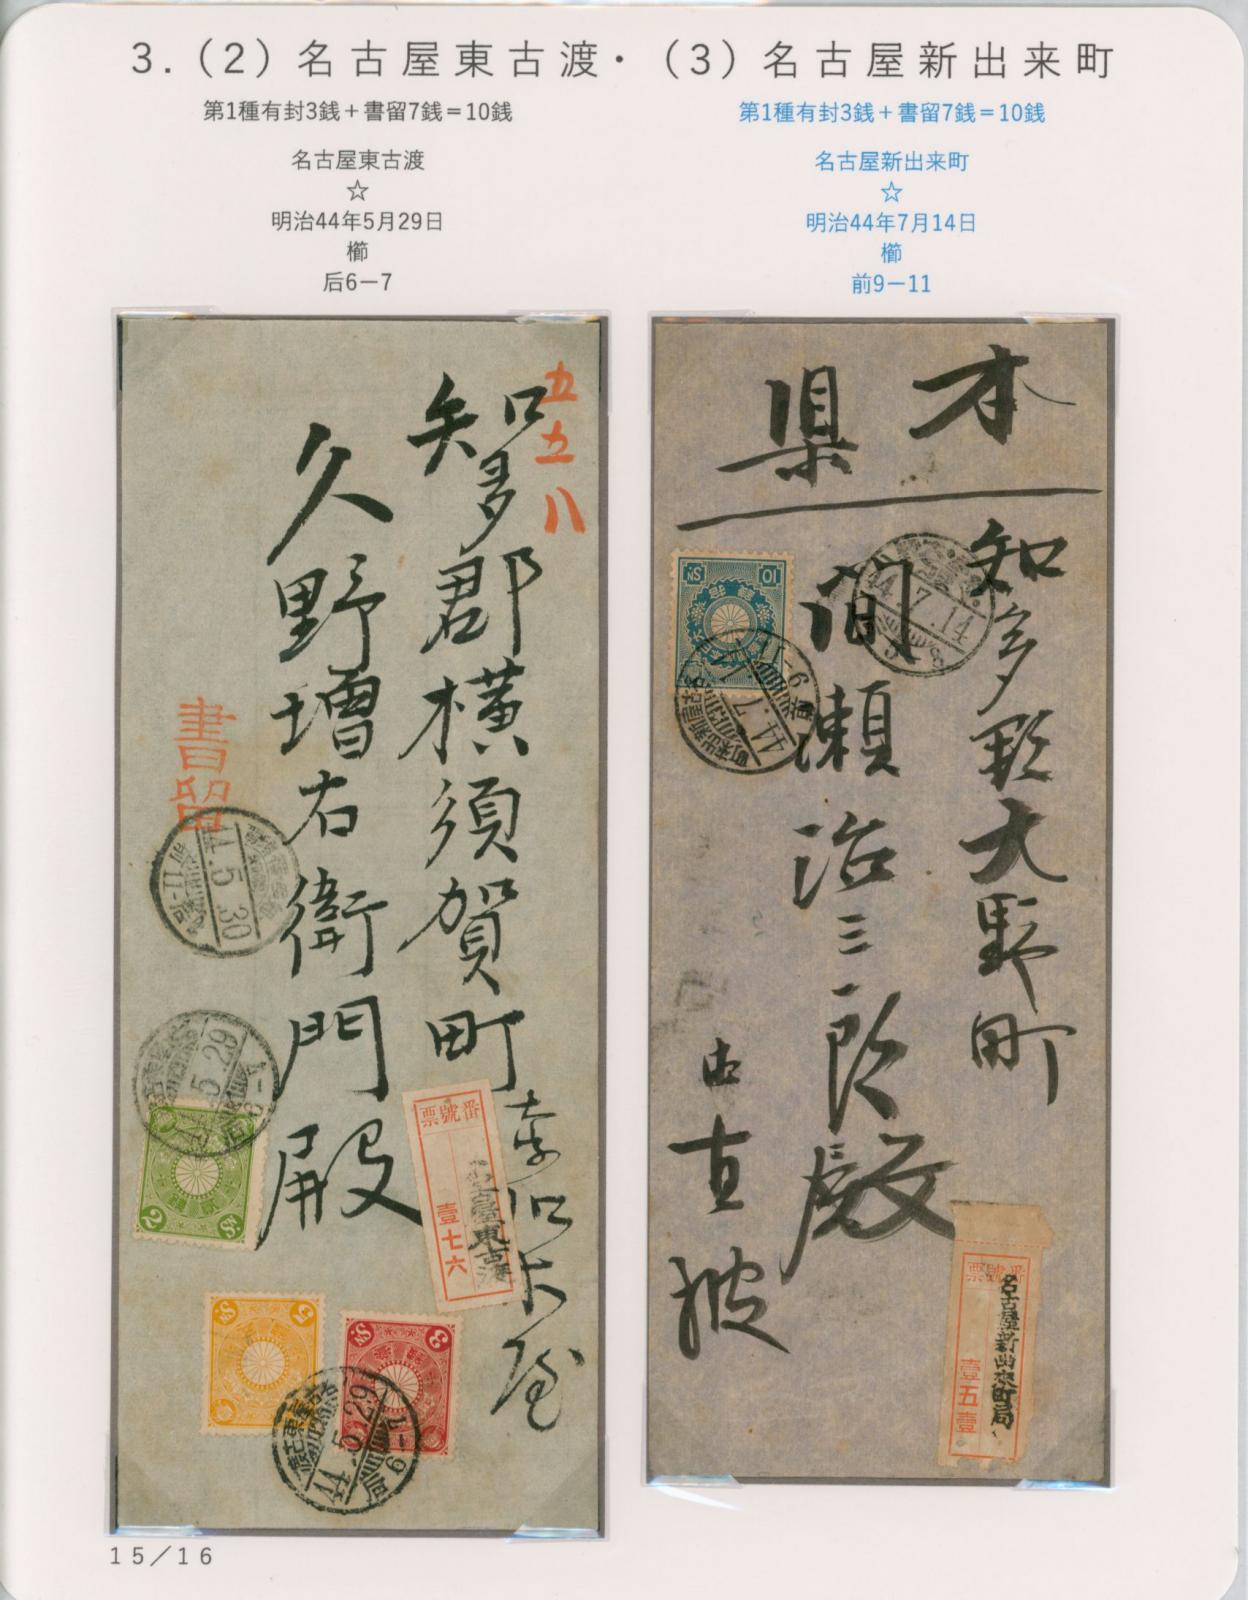 3.(2)名古屋東古渡・(3)名古屋新出来町
第1種有封3銭+書留7銭=10銭
名古屋東古渡
☆
明治44年5月29日
櫛
后6-7
第1種有封3銭+書留7銭=10銭
名古屋新出来町
☆
明治44年7月14日
櫛
前9-11
五五八
知多郡横須賀町
久野増右衛門殿
書留
44.5.30
5.29
2 SN
5 SN
3 SN
44.5.29
后6-7
票號番
名古屋東古渡
壹七六
本県
知多郡大野町
間瀬治三郎殿
10 SN
44.7.14
44.7.14
票號番
名古屋新出来町局
壹五壹
15/16